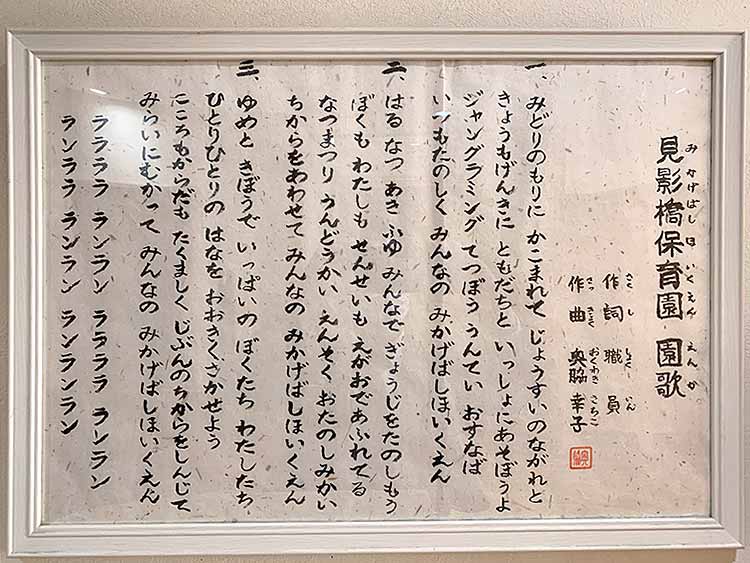 見影橋保育園 園歌
みかげばしほいくえん えんか
作詞 職員
さくし しょくいん
作曲 奥脇 幸子
さっきょく おくわき さちこ
一、みどりのもりに かこまれて じょうすいのながれと
きょうもげんきに ともだちと いっしょにあそぼうよ
ジャングラミング てつぼう うんてい おすなば
いつもたのしく みんなの みかげばしほいくえん
二、はる なつ あき ふゆ みんなで ぎょうじをたのしもう
ぼくも わたしも せんせいも えがおであふれてる
なつまつり うんどうかい えんそく おたのしみかい
ちからをあわせて みんなの みかげばしほいくえん
三、ゆめと きぼうで いっぱいの ぼくたち わたしたち
ひとりひとりの はなを おおきくさかせよう
こころもからだも たくましく じぶんのちからをしんじて
みらいにむかって みんなの みかげばしほいくえん
ララララ ランラン ララララ ランラン
ランララ ランラン ランランラン